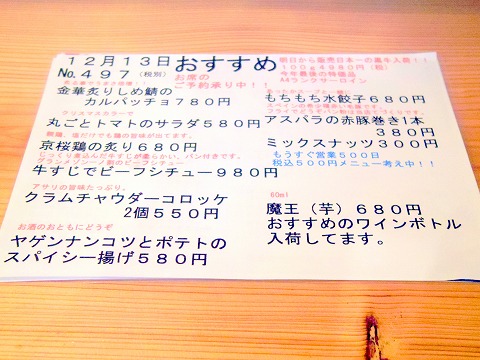 12月13日おすすめ
No.497(税別)
お席の
ご予約承り中!!
金華炙りしめ鯖の
カルパッチョ780円
クリスマスカラーで
丸ごとトマトのサラダ580円
京桜鶏の炙り680円
牛すじでビーフシチュー980円
アサリの旨味たっぷり。
クラムチャウダーコロッケ
2個550円
お酒のおともにどうぞ
ヤゲンナンコツとポテトの
スパイシー揚げ580円
100g4980円(税)
今年最後の特価品
A4ランクサーロイン
もちもち水餃子680円
アスパラの赤豚巻き1本
380円
ミックスナッツ300円
もうすぐ営業500日
税込500円メニュー考え中!!
60ml
魔王(芋)680円
おすすめのワインボトル
入荷してます。